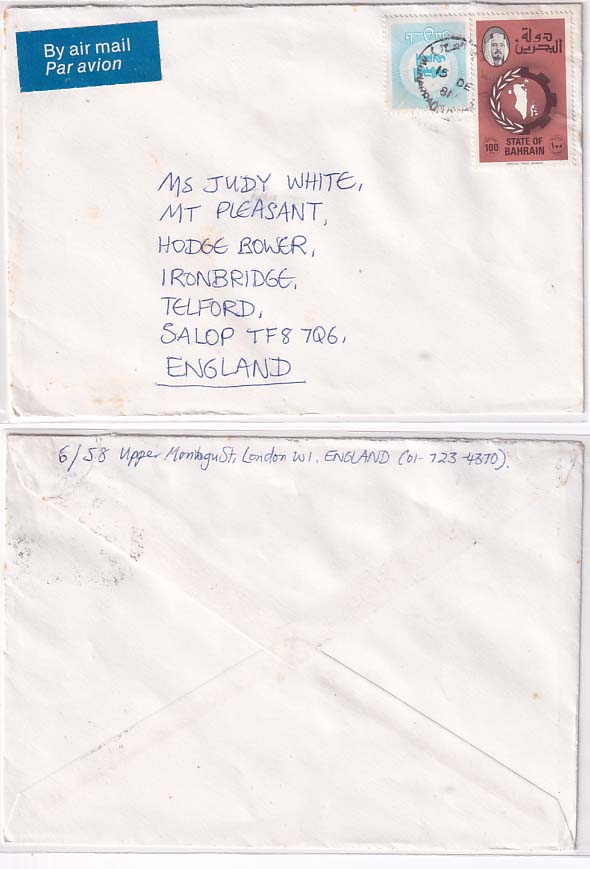 By air mail
Par avion
دولة
البحرين
15 DE
81
100
STATE OF
BAHRAIN
١٠٠
MS JUDY WHITE,
MT PLEASANT,
HODGE BOWER,
IRONBRIDGE,
TELFORD,
SALOP TF8 7QG,
ENGLAND
6/58 Upper Montagu St, London W1, ENGLAND (01-723-4370).